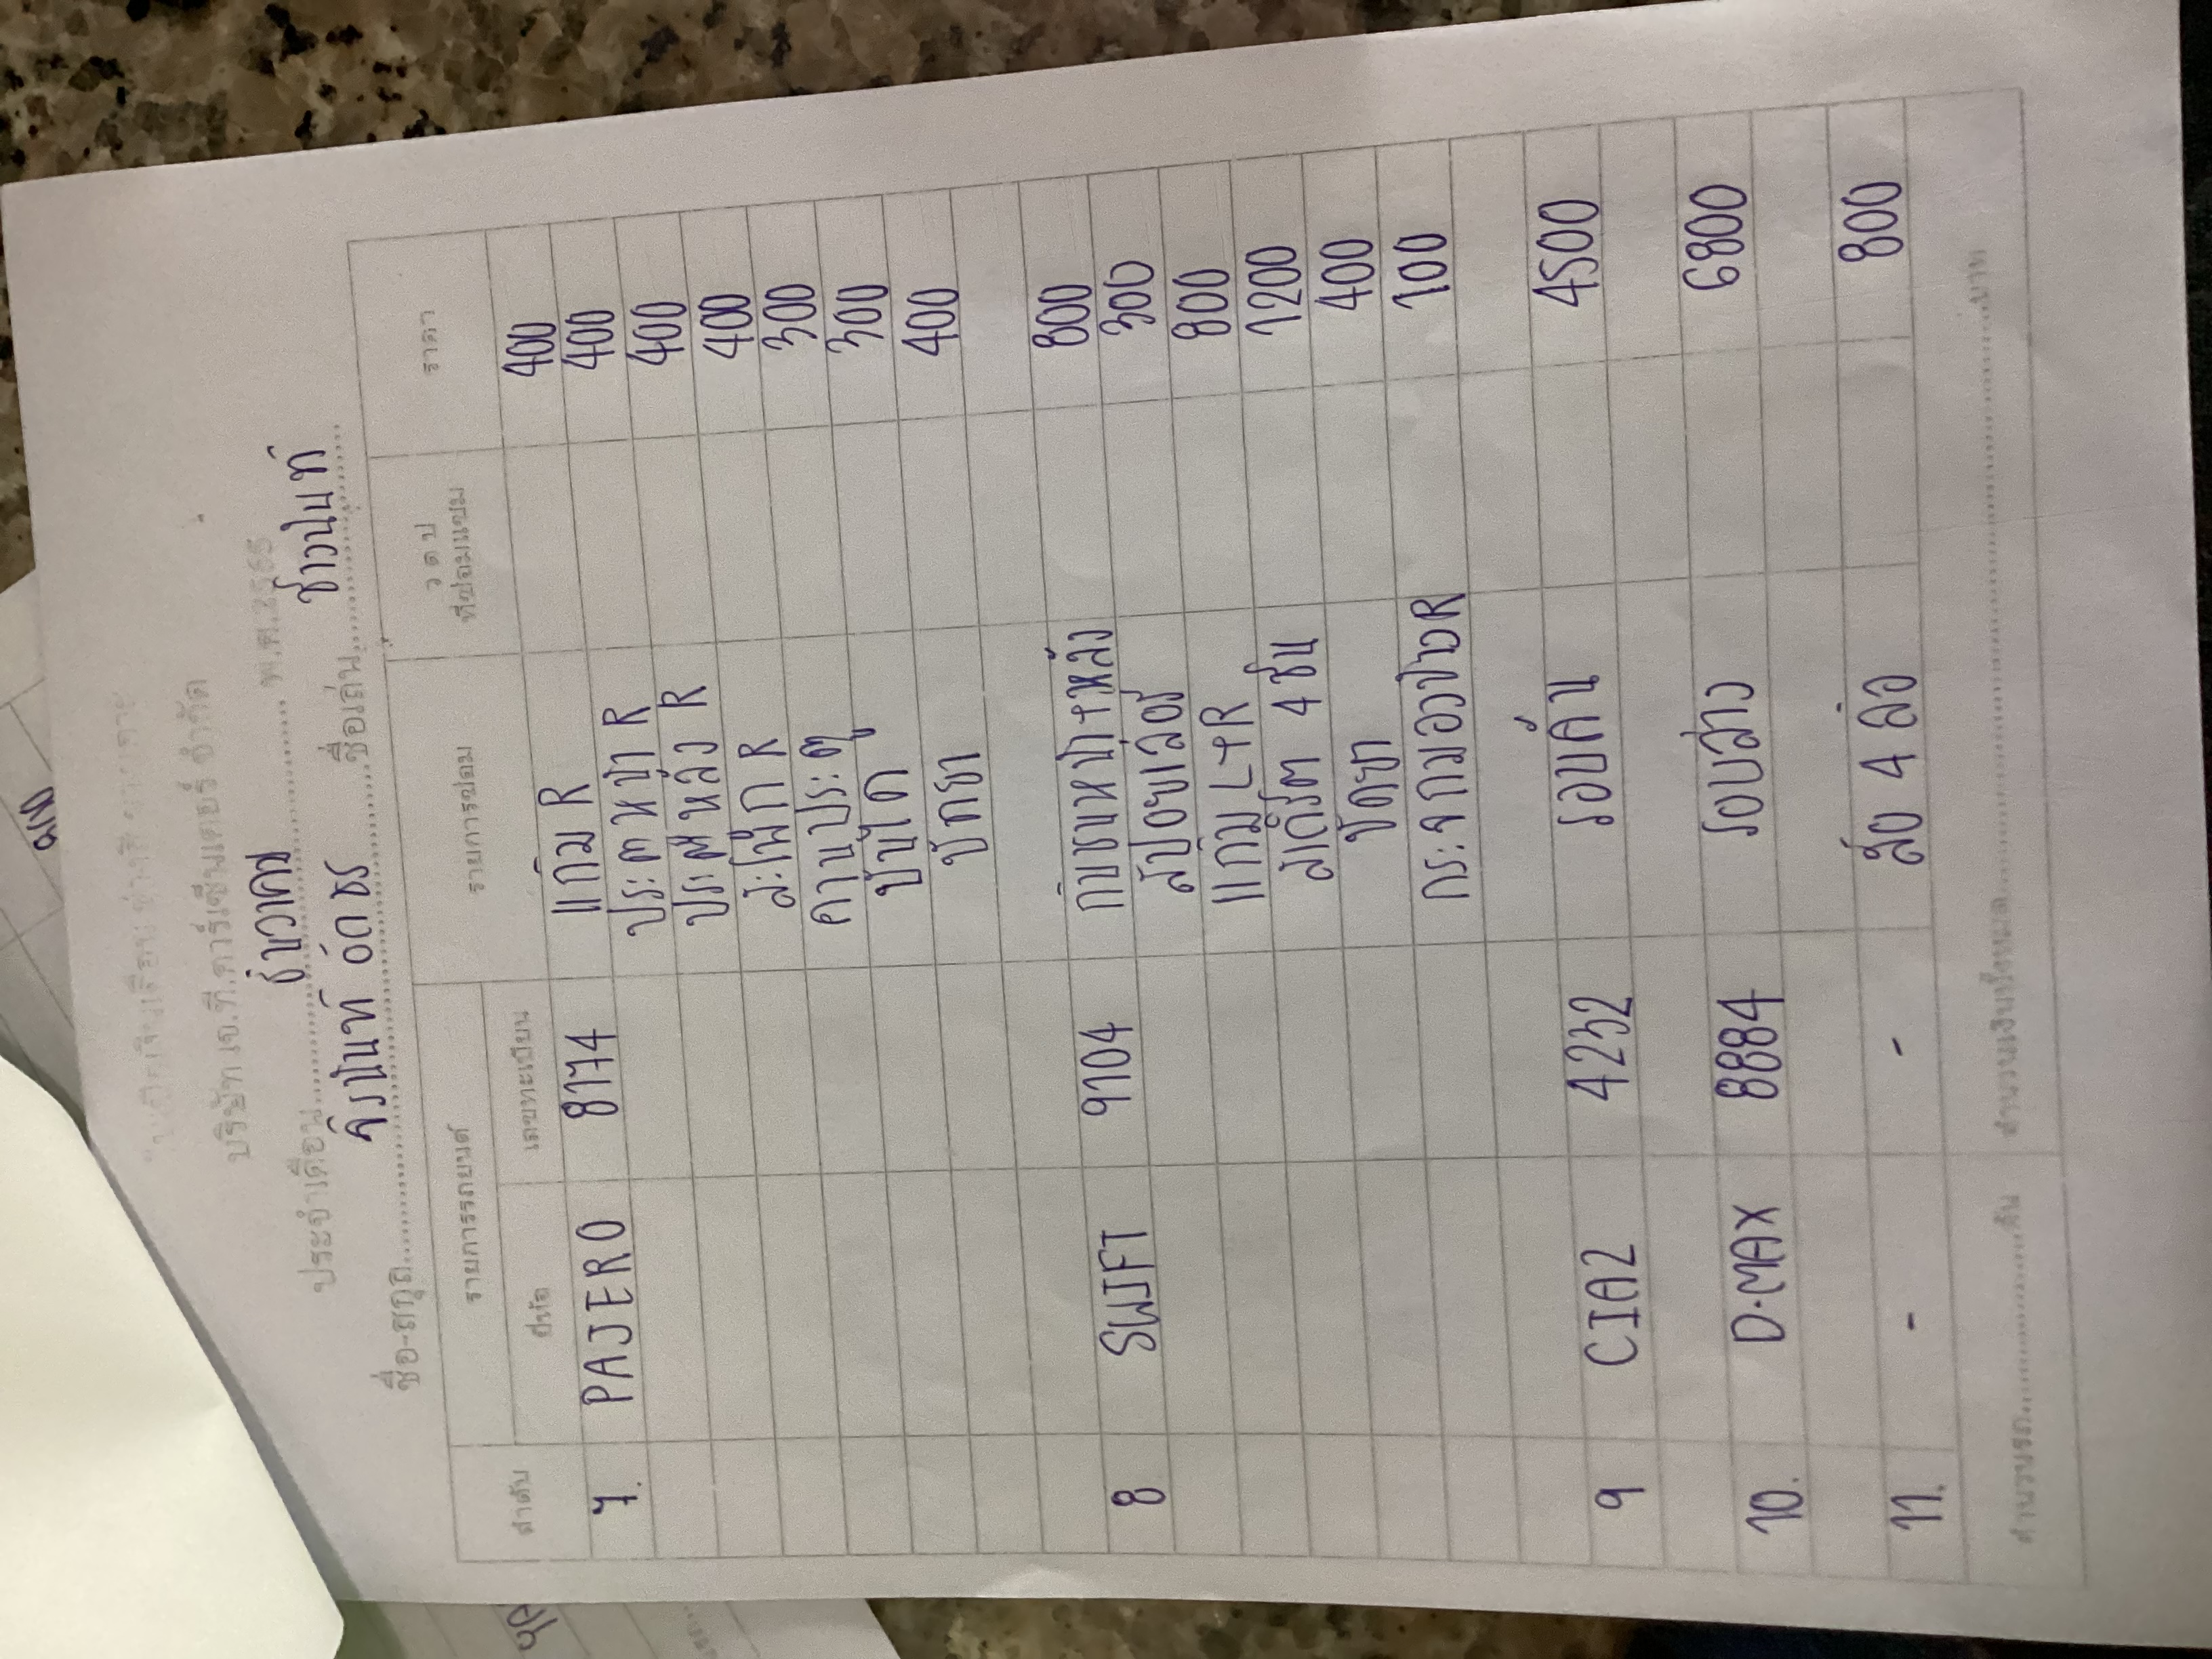 บริษัท เจ.ที.คาร์เซ็นเตอร์ จำกัด
ประจำเดือน........ธันวาคม........ พ.ศ.2565
ชื่อ-สกุล........จิรนันท์........ชื่อเล่น........ชาวนนท์........
ลำดับ รายการรถยนต์ รายการซ่อม ว ด ป ราคา
ยี่ห้อ เลขทะเบียน ที่ซ่อมแซม
7. PAJERO 8174 แก้ม R 400
ประตูหน้า R 400
ประตูหลัง R 400
สะโพก R 400
คานประตู 300
บันได 300
ปัทยา 400
8 SWIFT 9104 กันชนหน้า+หลัง 800
สปอยเลอร์ 300
แก้ม L+R 800
สเกิร์ต 4 ชิ้น 1200
ขัดยา 400
กระจกมองข้างR 100
9 CIA2 4232 รอบคัน 4500
10. D-MAX 8884 รอบล่าง 6800
11. - - ล้อ 4 ล้อ 800
จำนวนรถ........คัน จำนวนเงินทั้งหมด........บาท